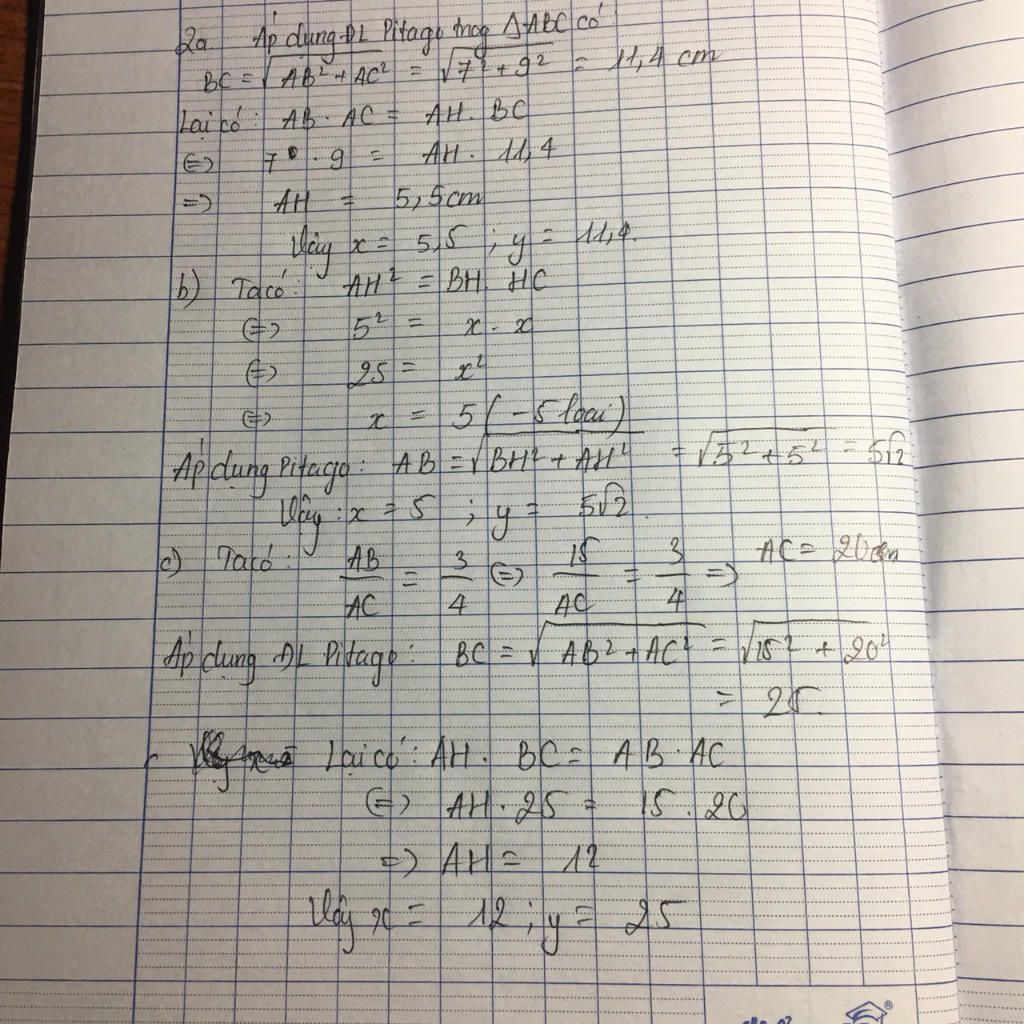 2a Áp dụng ĐL Pitago trog ΔABC có
BC = √(AB² + AC²) = √(7² + 9²) = 11,4 cm
Lại có: AB . AC = AH . BC
⇔ 7 . 9 = AH . 11,4
=> AH = 5,5cm
Vậy x = 5,5 ; y = 11,4.
b) Ta có: AH² = BH . HC
⇔ 5² = x . x
⇔ 25 = x²
⇔ x = 5 (-5 loại)
Áp dụng Pitago: AB = √(BH² + AH²) = √(5² + 5²) = 5√2
Vậy: x = 5 ; y = 5√2.
c) Ta có: AB/AC = 3/4 ⇔ 15/AC = 3/4 => AC = 20cm
Áp dụng ĐL Pitago: BC = √(AB² + AC²) = √(15² + 20²)
= 25.
Lại có: AH . BC = AB . AC
⇔ AH . 25 = 15 . 20
=> AH = 12
Vậy x = 12 ; y = 25